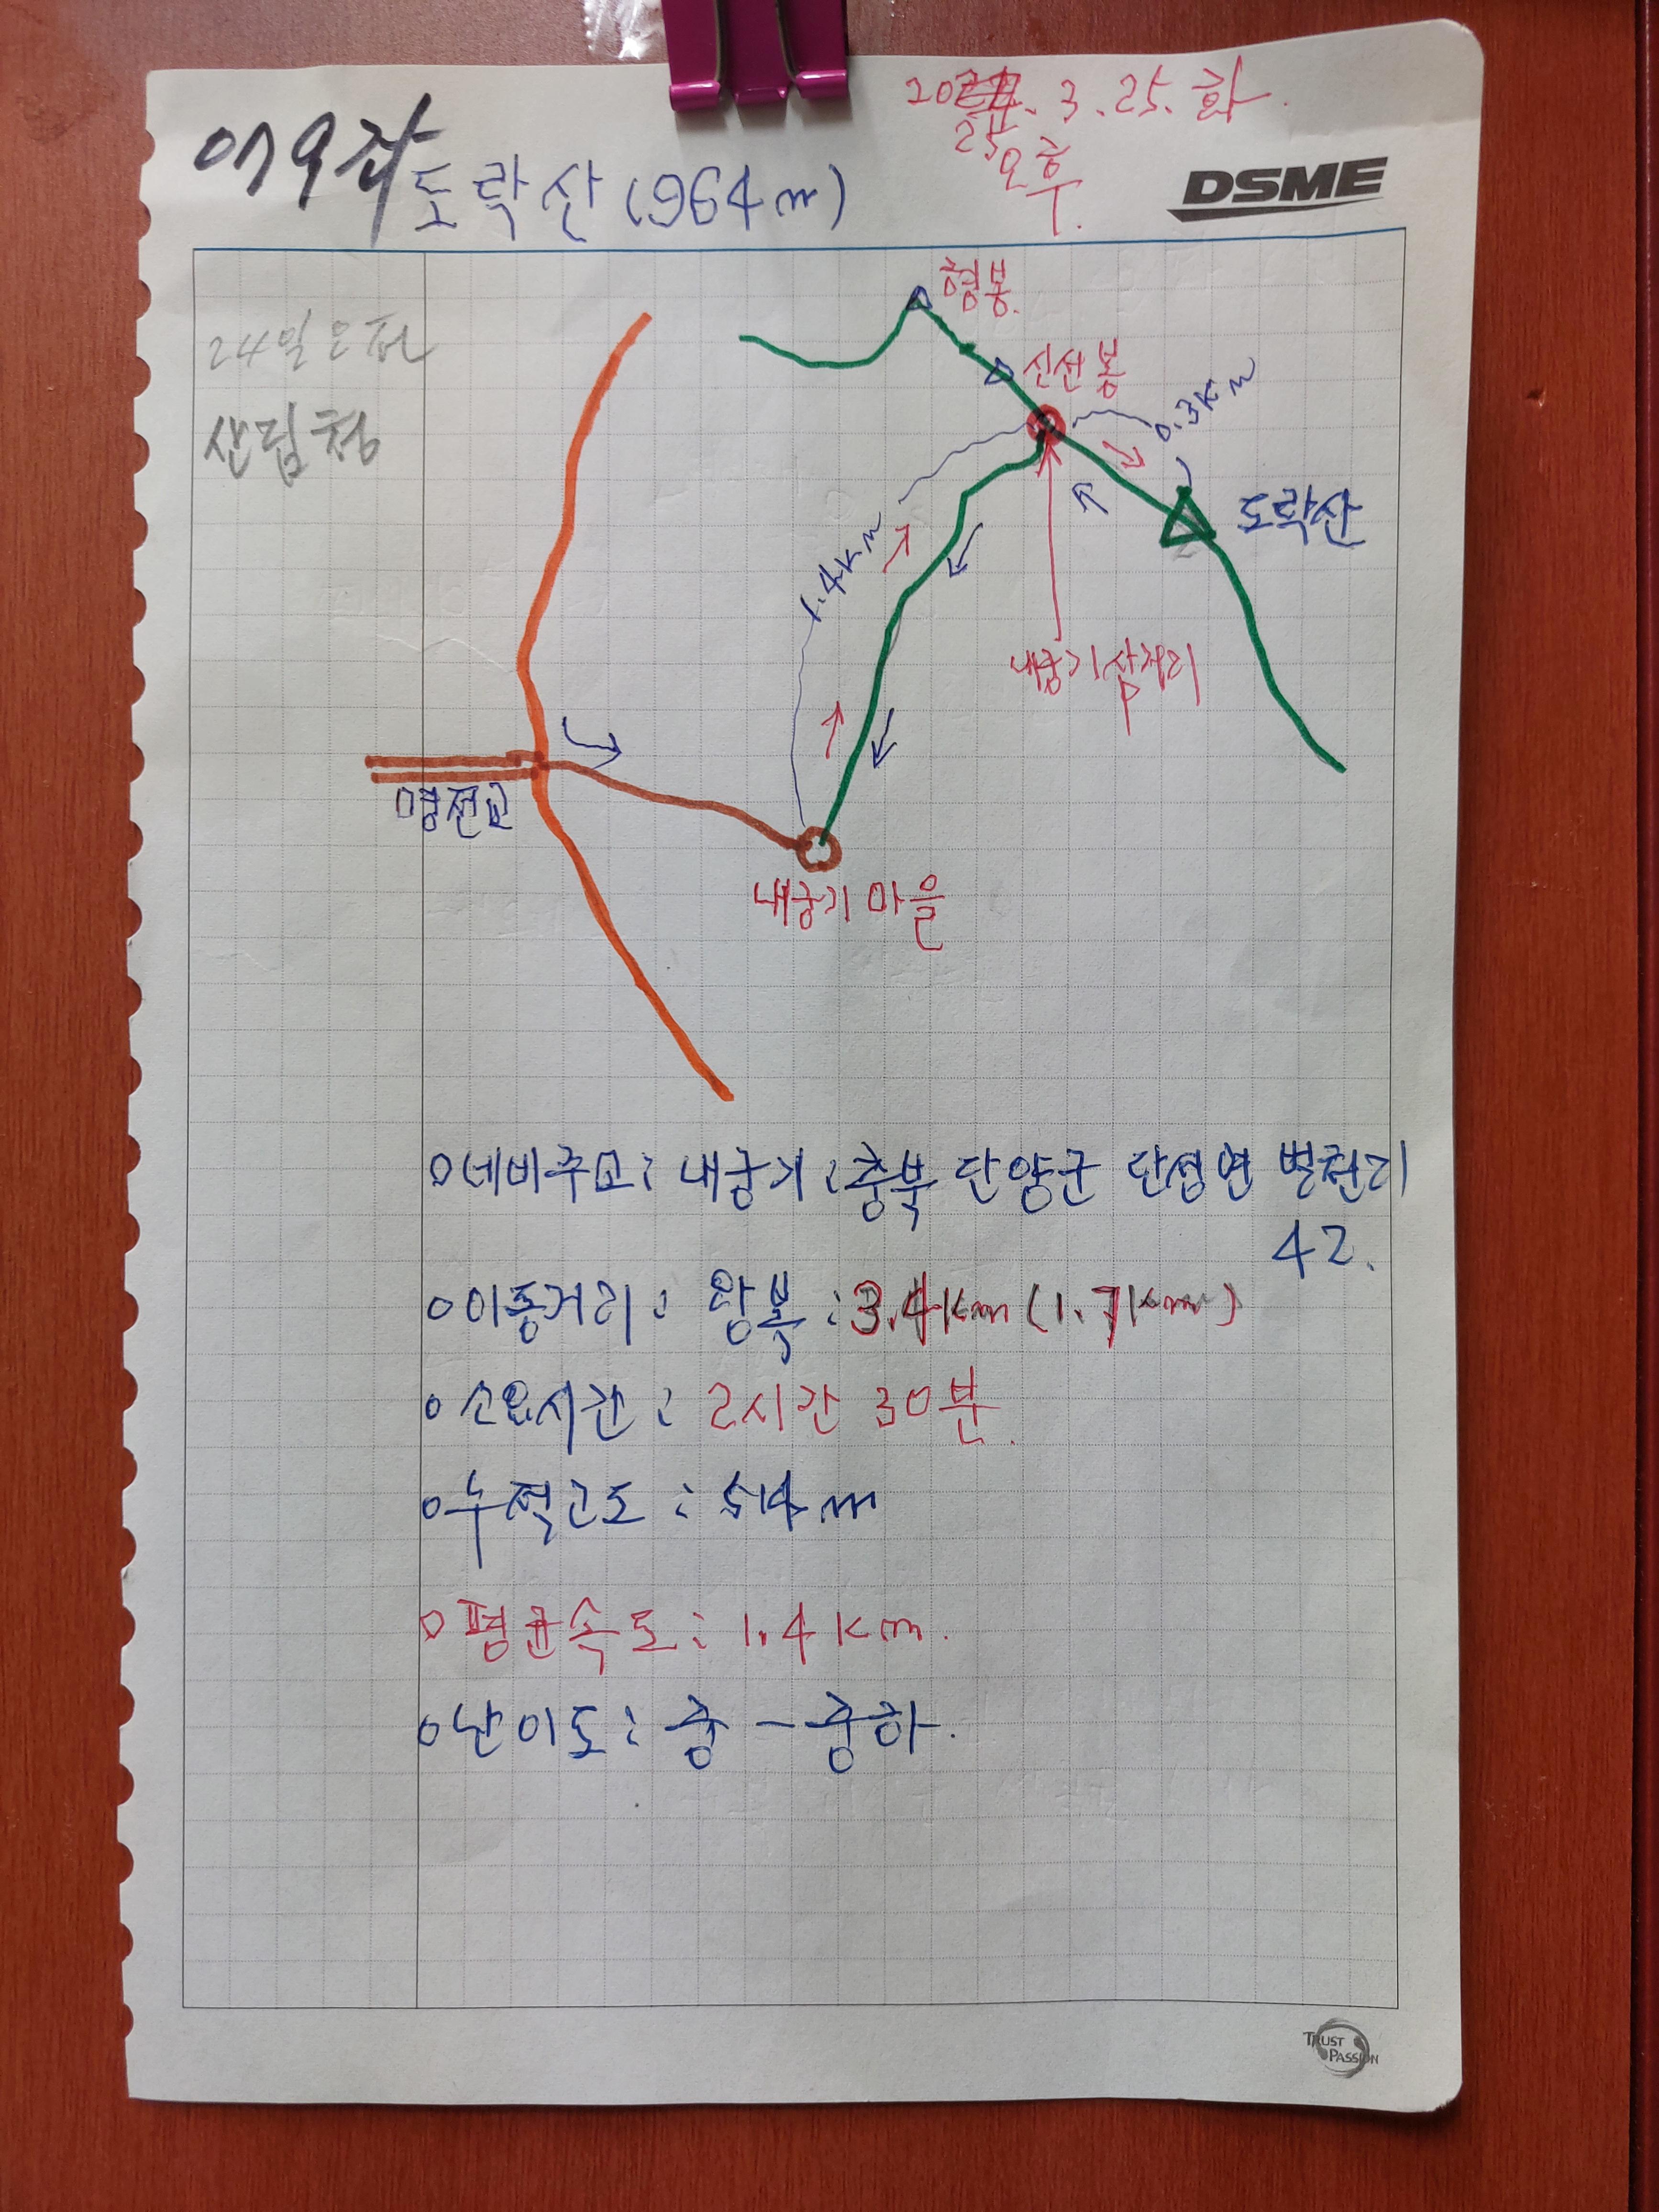 079좌 도락산 (964m)
2025. 3. 25. 화.
오후.
DSME
24일 오전
산림청
형봉.
신선봉
0.3Km
1.4Km
도락산
내궁기삼거리
내궁기 마을
네비주소: 내궁기: 충북 단양군 단성면 벌천리
42.
이동거리: 왕복: 3.4Km (1.7Km)
소요시간: 2시간 30분.
누적고도: 514m
평균속도: 1.4Km.
난이도: 중 - 중하.
TRUST
PASSION